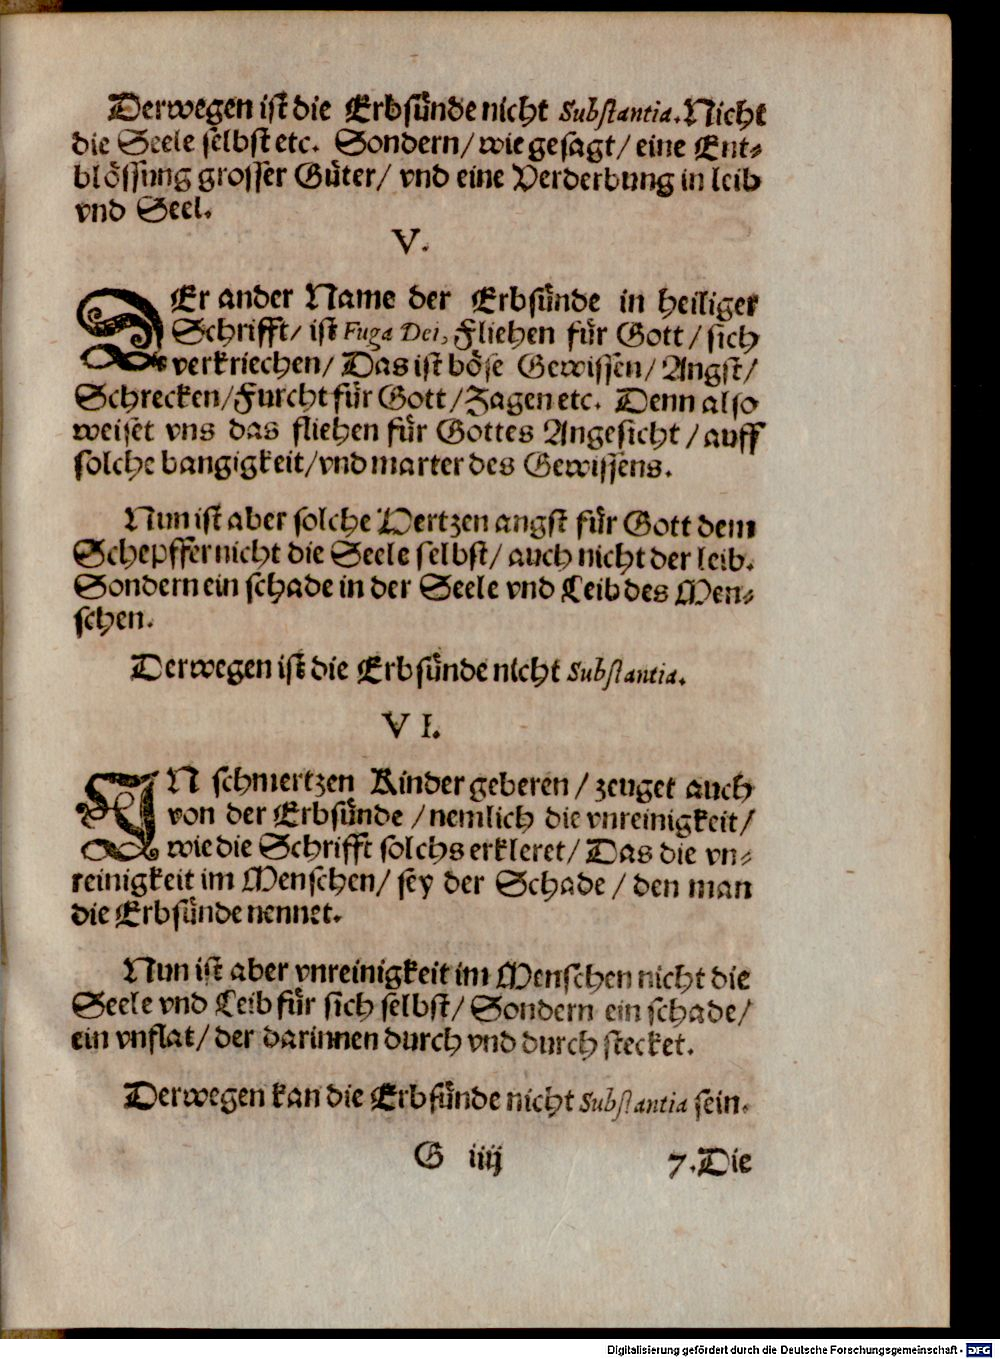 Derwegen ist die Erbsünde nicht Substantia. Nicht
die Seele selbst etc. Sondern/ wie gesagt/ eine Ent-
blössung grosser Güter/ vnd eine Verderbung in leib
vnd Seel.
V.
DEr ander Name der Erbsünde in heiliger
Schrifft/ ist Fuga Dei, Fliehen für Gott/ sich
verkriechen/ Das ist böse Gewissen/ Angst/
Schrecken/ Furcht für Gott/ Zagen etc. Denn also
weiset vns das fliehen für Gottes Angesicht/ auff
solche bangigkeit/ vnd marter des Gewissens.
Nun ist aber solche Hertzen angst für Gott dem
Schepffer nicht die Seele selbst/ auch nicht der leib.
Sondern ein schade in der Seele vnd Leib des Men-
schen.
Derwegen ist die Erbsünde nicht Substantia.
VI.
IN schmertzen Kinder geberen/ zeuget auch
von der Erbsünde/ nemlich die vnreinigkeit/
wie die Schrifft solchs erkleret/ Das die vn-
reinigkeit im Menschen/ sey der Schade/ den man
die Erbsünde nennet.
Nun ist aber vnreinigkeit im Menschen nicht die
Seele vnd Leib für sich selbst/ Sondern ein schade/
ein vnflat/ der darinnen durch vnd durch stecket.
Derwegen kan die Erbsünde nicht Substantia sein.
G iiij 7. Die
Digitalisierung gefördert durch die Deutsche Forschungsgemeinschaft - DFG